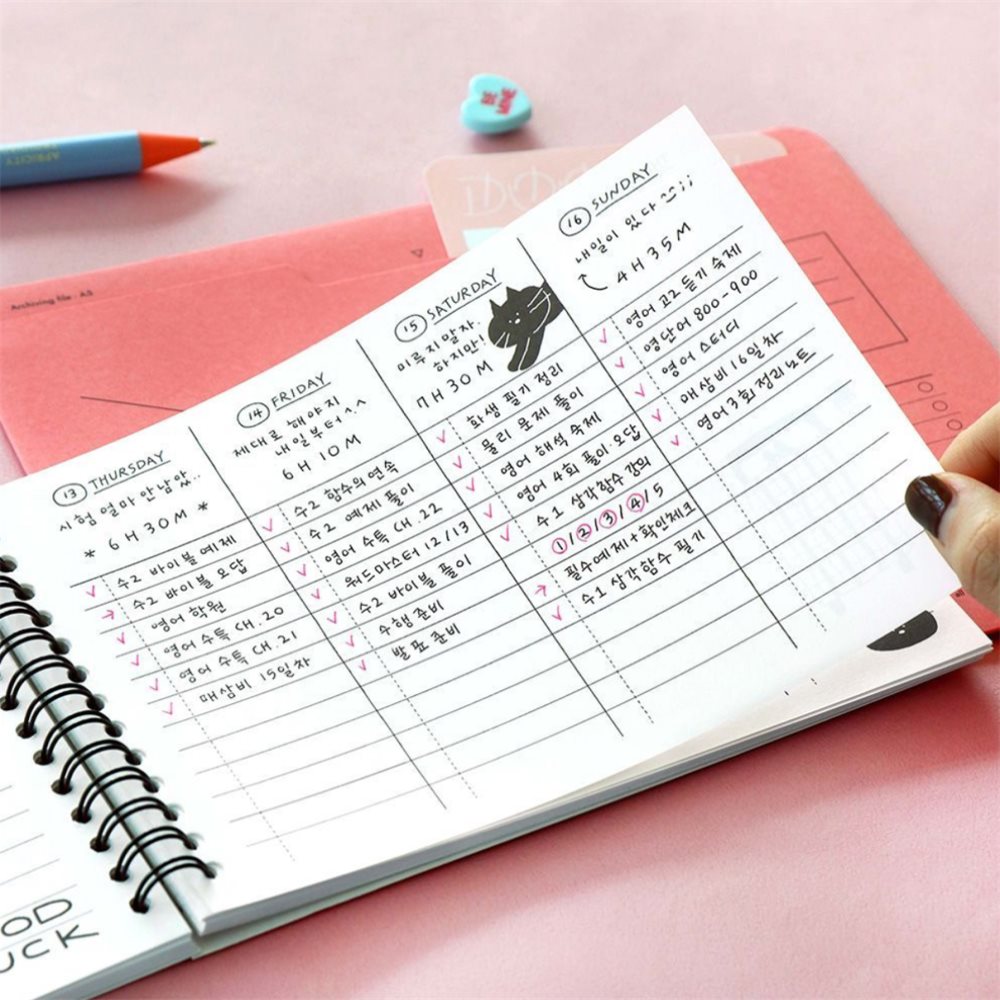 APRICITY
BE MINE
Archiving file · A5
13 THURSDAY
시험 얼마 안 남았..
* 6H 30M *
수2 바이블 예제
수2 바이블 오답
영어 학원
영어 수특 CH.20
영어 수특 CH.21
매삼비 15일차
14 FRIDAY
제대로 해야지
내일부터^^
6H 10M
수2 함수의 연속
수2 예제 풀이
영어 수특 CH.22
워드마스터 12/13
수2 바이블 풀이
수행 준비
발표 준비
15 SATURDAY
미루지 말자.
하지만!
7H 30M
화생 필기 정리
물리 문제 풀이
영어 해석 숙제
영어 4회 풀이 오답
수1 삼각함수 강의
1/2/3/4/5
필수예제+확인체크
수1 삼각함수 필기
16 SUNDAY
내일이 있다 ;;
4H 35M
영어 고2 듣기 숙제
영단어 800-900
영어 스터디
매삼비 16일차
영어 3회 정리노트
OD
UCK